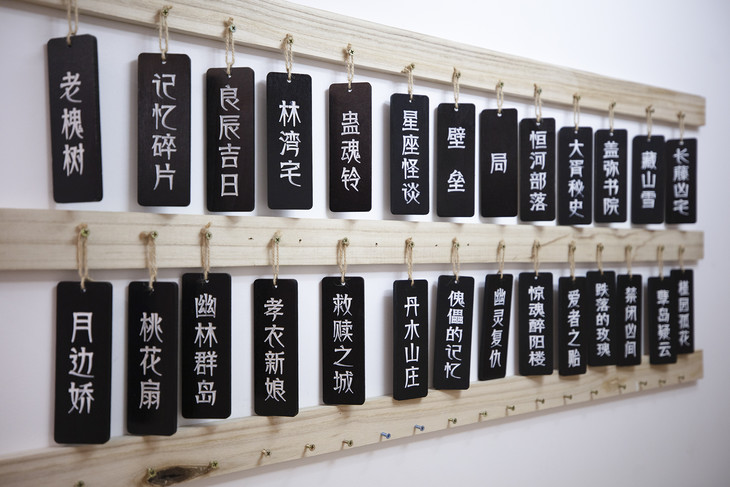 老槐树
记忆碎片
良辰吉日
林湾宅
蛊魂铃
星座怪谈
壁垒
局
恒河部落
大胥秘史
盖弥书院
藏山雪
长藤凶宅
月边娇
桃花扇
幽林群岛
孝衣新娘
救赎之城
丹木山庄
傀儡的记忆
幽灵复仇
惊魂醉阳楼
爱者之贻
跌落的玫瑰
禁闭凶间
孽岛疑云